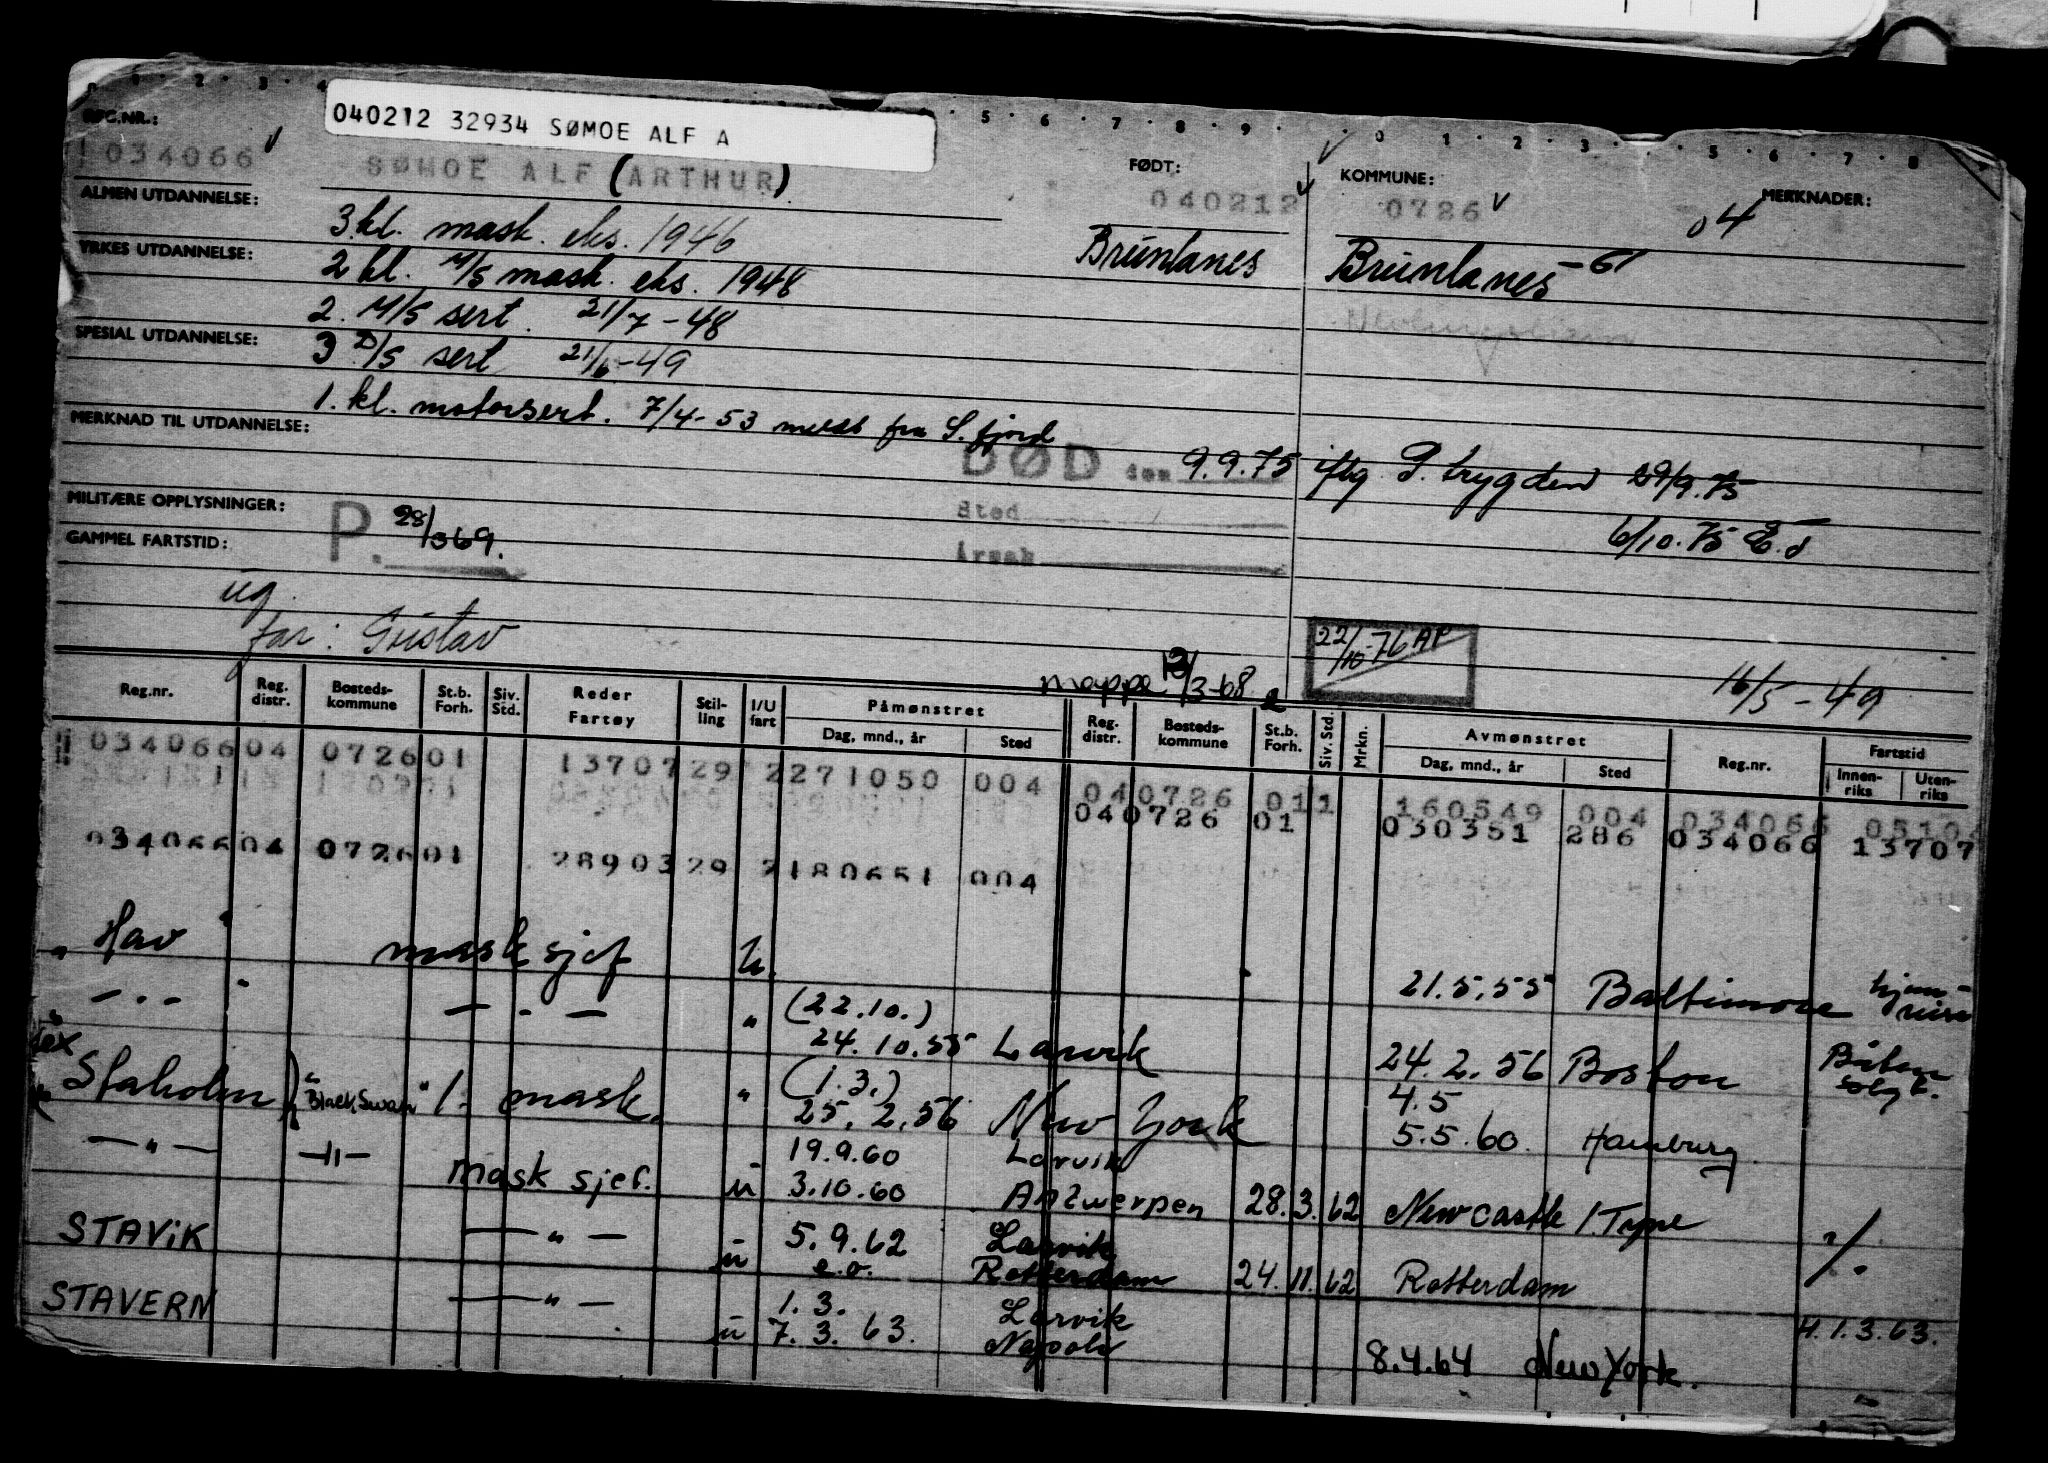 040212 32934 SØMOE ALF A
REG.NR.:
034066
SØMOE ALF (ARTHUR)
FØDT:
040212
KOMMUNE:
0726
MERKNADER:
04
ALMEN UTDANNELSE:
3 kl. mask. eks. 1946
Brunlanes
Brunlanes -61
YRKES UTDANNELSE:
2 kl. M/S mask. eks. 1948
2. M/S sert. 21/7-48
SPESIAL UTDANNELSE:
3 D/S sert 21/6-49
1. kl. motorsert. 7/4-53 fra S. fjord
MERKNAD TIL UTDANNELSE:
DØD den 9.9.75 iflg P. trygden 29/9.75
Sted
6/10.75
MILITÆRE OPPLYSNINGER:
P. 28/369.
Årsak
GAMMEL FARTSTID:
ug
far: Gustav
22/10-76 AP
mappe 12/3-68
16/5-49
Reg.nr. Reg. distr. Bosteds-kommune St.b. Forh. Siv. Std. Reder Fartøy Stil-ling I/U fart Påmønstret Dag, mnd., år Sted Reg. distr. Bosteds-kommune St.b. Forh. Siv. Std. Mrkn. Avmønstret Dag, mnd., år Sted Reg.nr. Fartstid Innen-riks Uten-riks
034066 04 0726 01 13707 29 2 271050 004 04 0726 01 1 160549 004 034066
04 0726 01 030351 286 034066 13707
034066 04 0726 01 28903 29 2 180651 004
" Hav " mask sjef u. 21.5.55 Baltimore hjem-reise
— " — — " — " (22.10.) 24.10.55 Larvik 24.2.56 Boston Båten solgt.
(ex Staholm) "Black Swan" 1. mask. " (1.3.) 25.2.56 New York 4.5 5.5.60. Hamburg
— " — — " — mask sjef. u 19.9.60 Larvik
3.10.60 Antwerpen 28.3.62 Newcastle /Tyne
STAVIK — " — u 5.9.62 Larvik
e.o. Rotterdam 24.11.62 Rotterdam
STAVERN — " — u 1.3. Larvik H.1.3.63.
7.3.63. Napoli 8.4.64 New York.